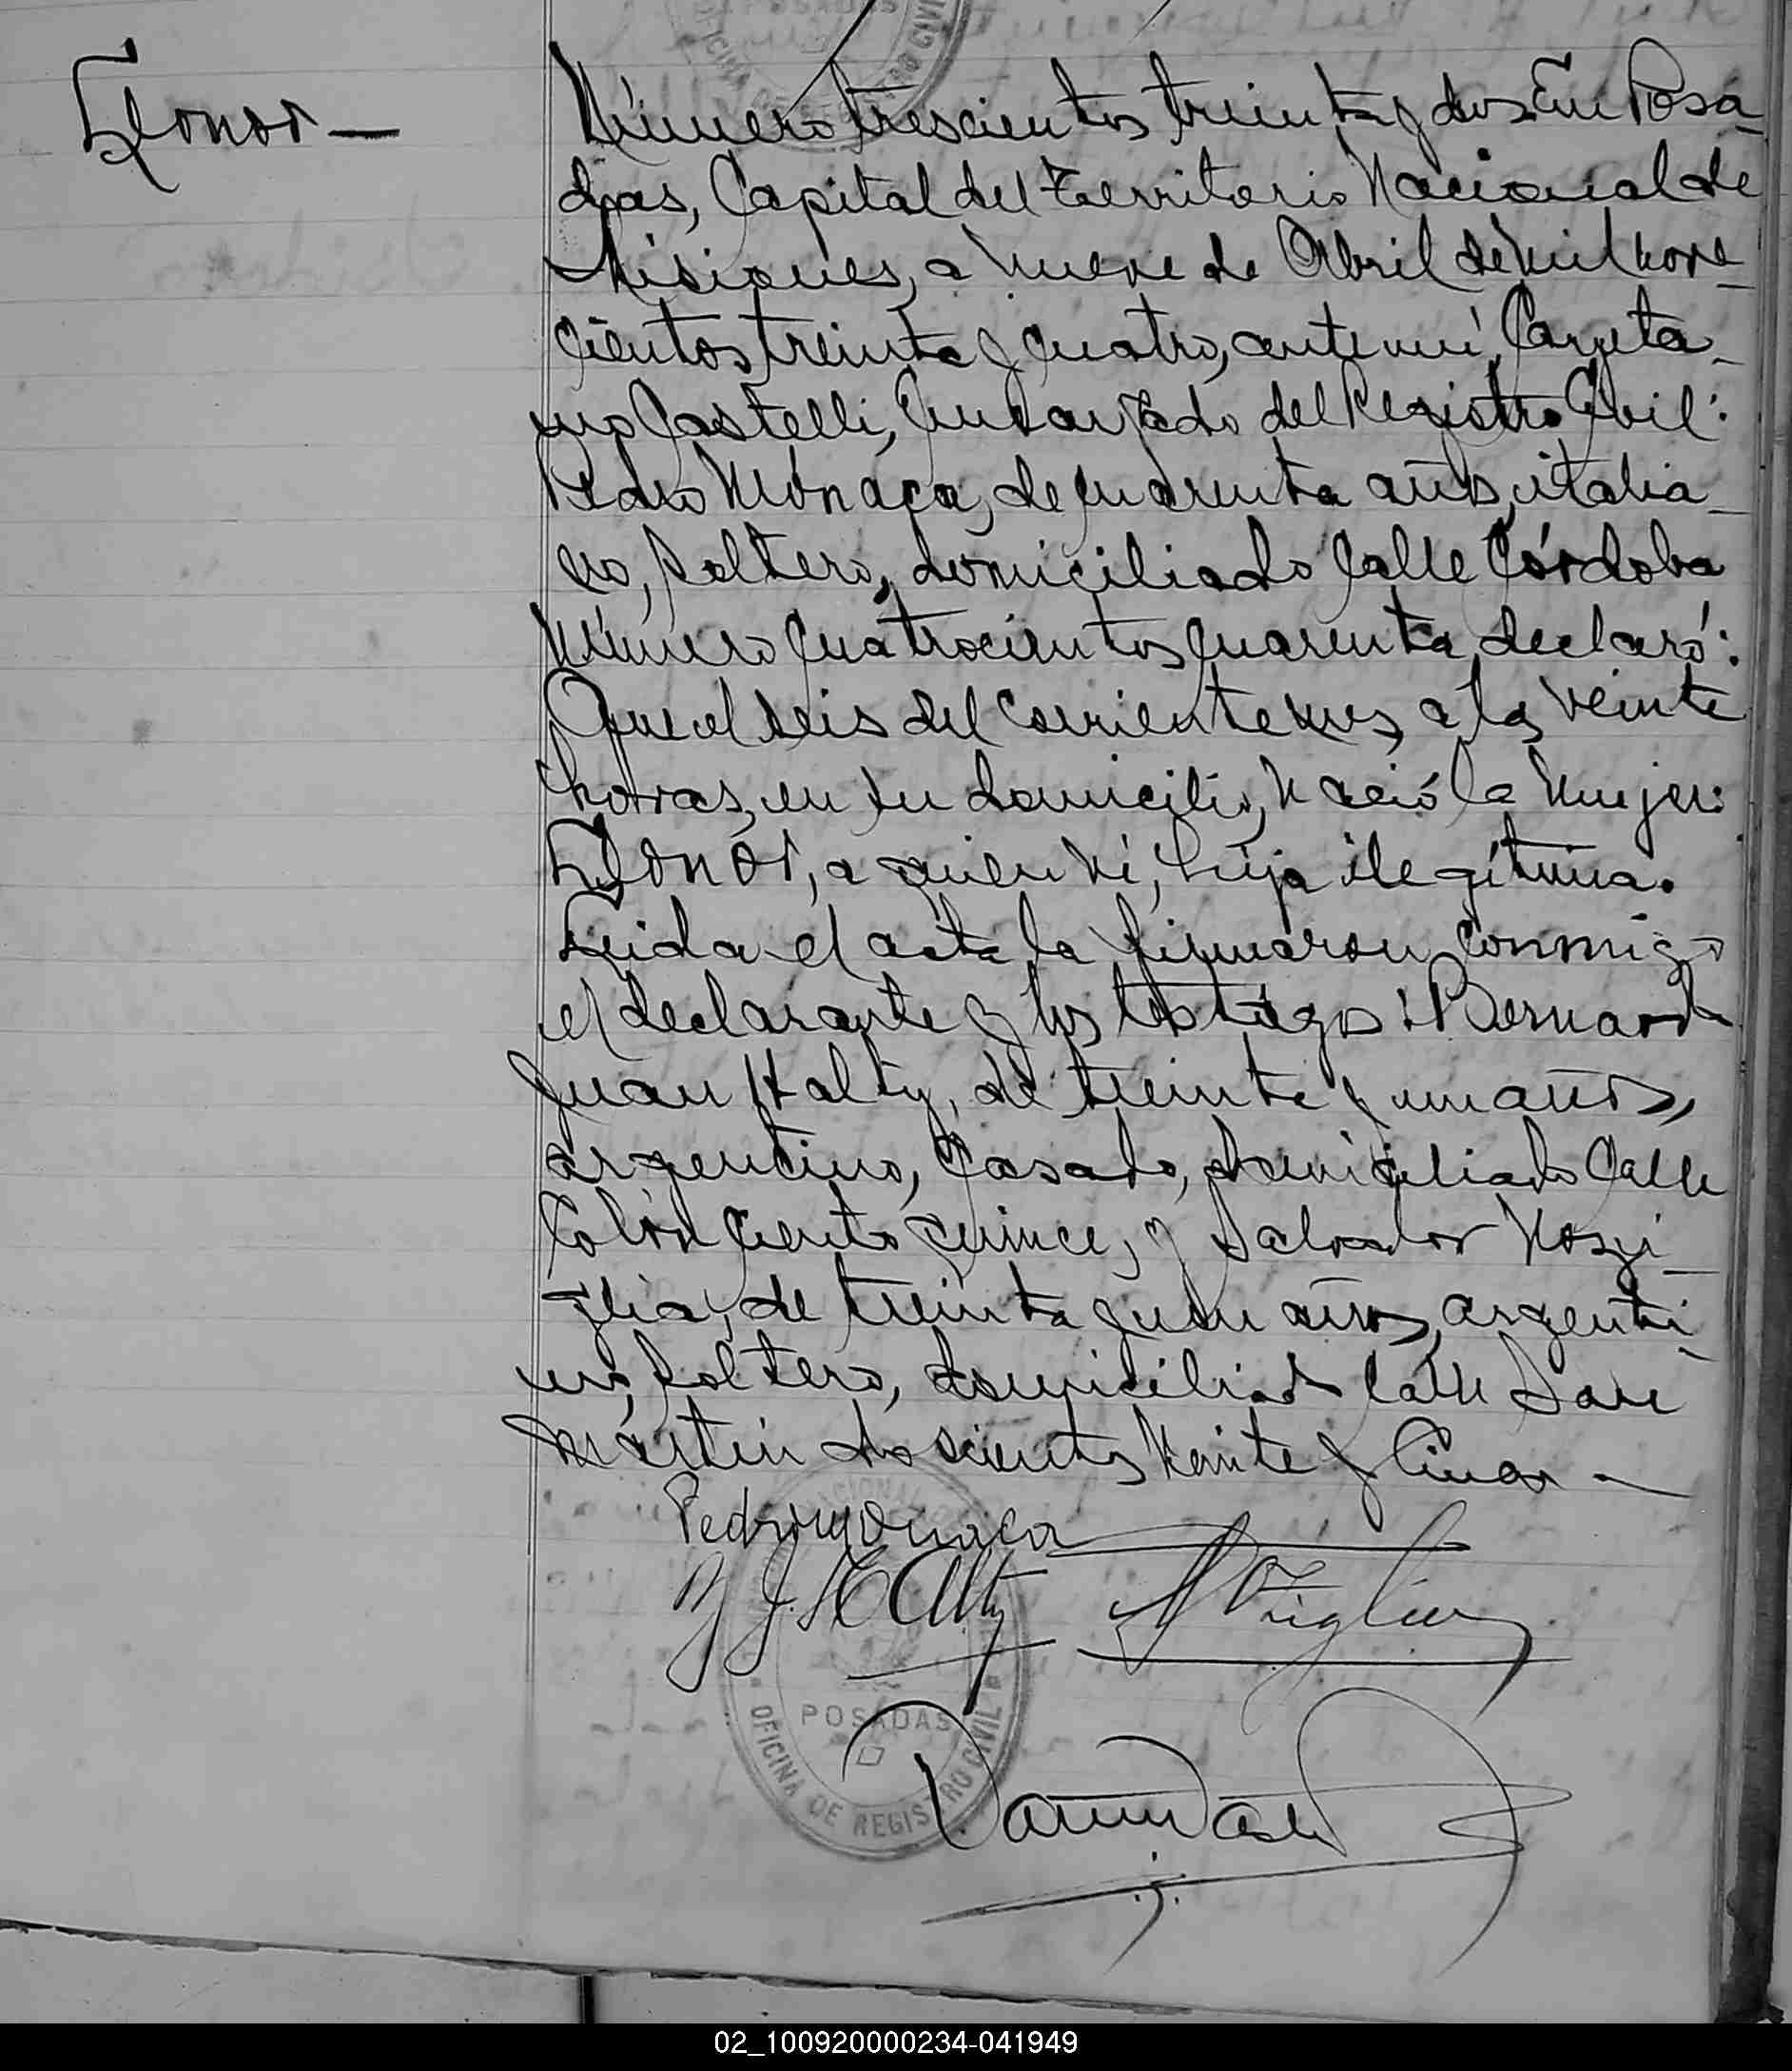 POSADAS
OFICINA DE REGISTRO CIVIL
Leonor —
Número trescientos treinta y dos. En Posa-
das, Capital del Territorio Nacional de
Misiones, a nueve de Abril de mil nove-
cientos treinta y cuatro, ante mí, Cayeta-
no Castelli, Encargado del Registro Civil:
Pedro Mónaca, de cuarenta años, italia-
no, soltero, domiciliado Calle Córdoba
número cuatrocientos cuarenta, declaró:
Que el seis del corriente mes, a las veinte
horas, en su domicilio, nació la mujer:
Leonor, a quien ví, hija ilegítima.
Leida el acta la firmaron conmigo
el declarante y los testigos: Bernardo
Juan Halty, de treinta y un años,
argentino, casado, domiciliado Calle
Colón ciento quince, y Salvador
de treinta y un años, argenti-
no, soltero, domiciliado calle San
Martín doscientos veinte y cinco —
Pedro Monaca
B J. Halty
POSADAS
OFICINA DE REGISTRO CIVIL
02_100920000234-041949